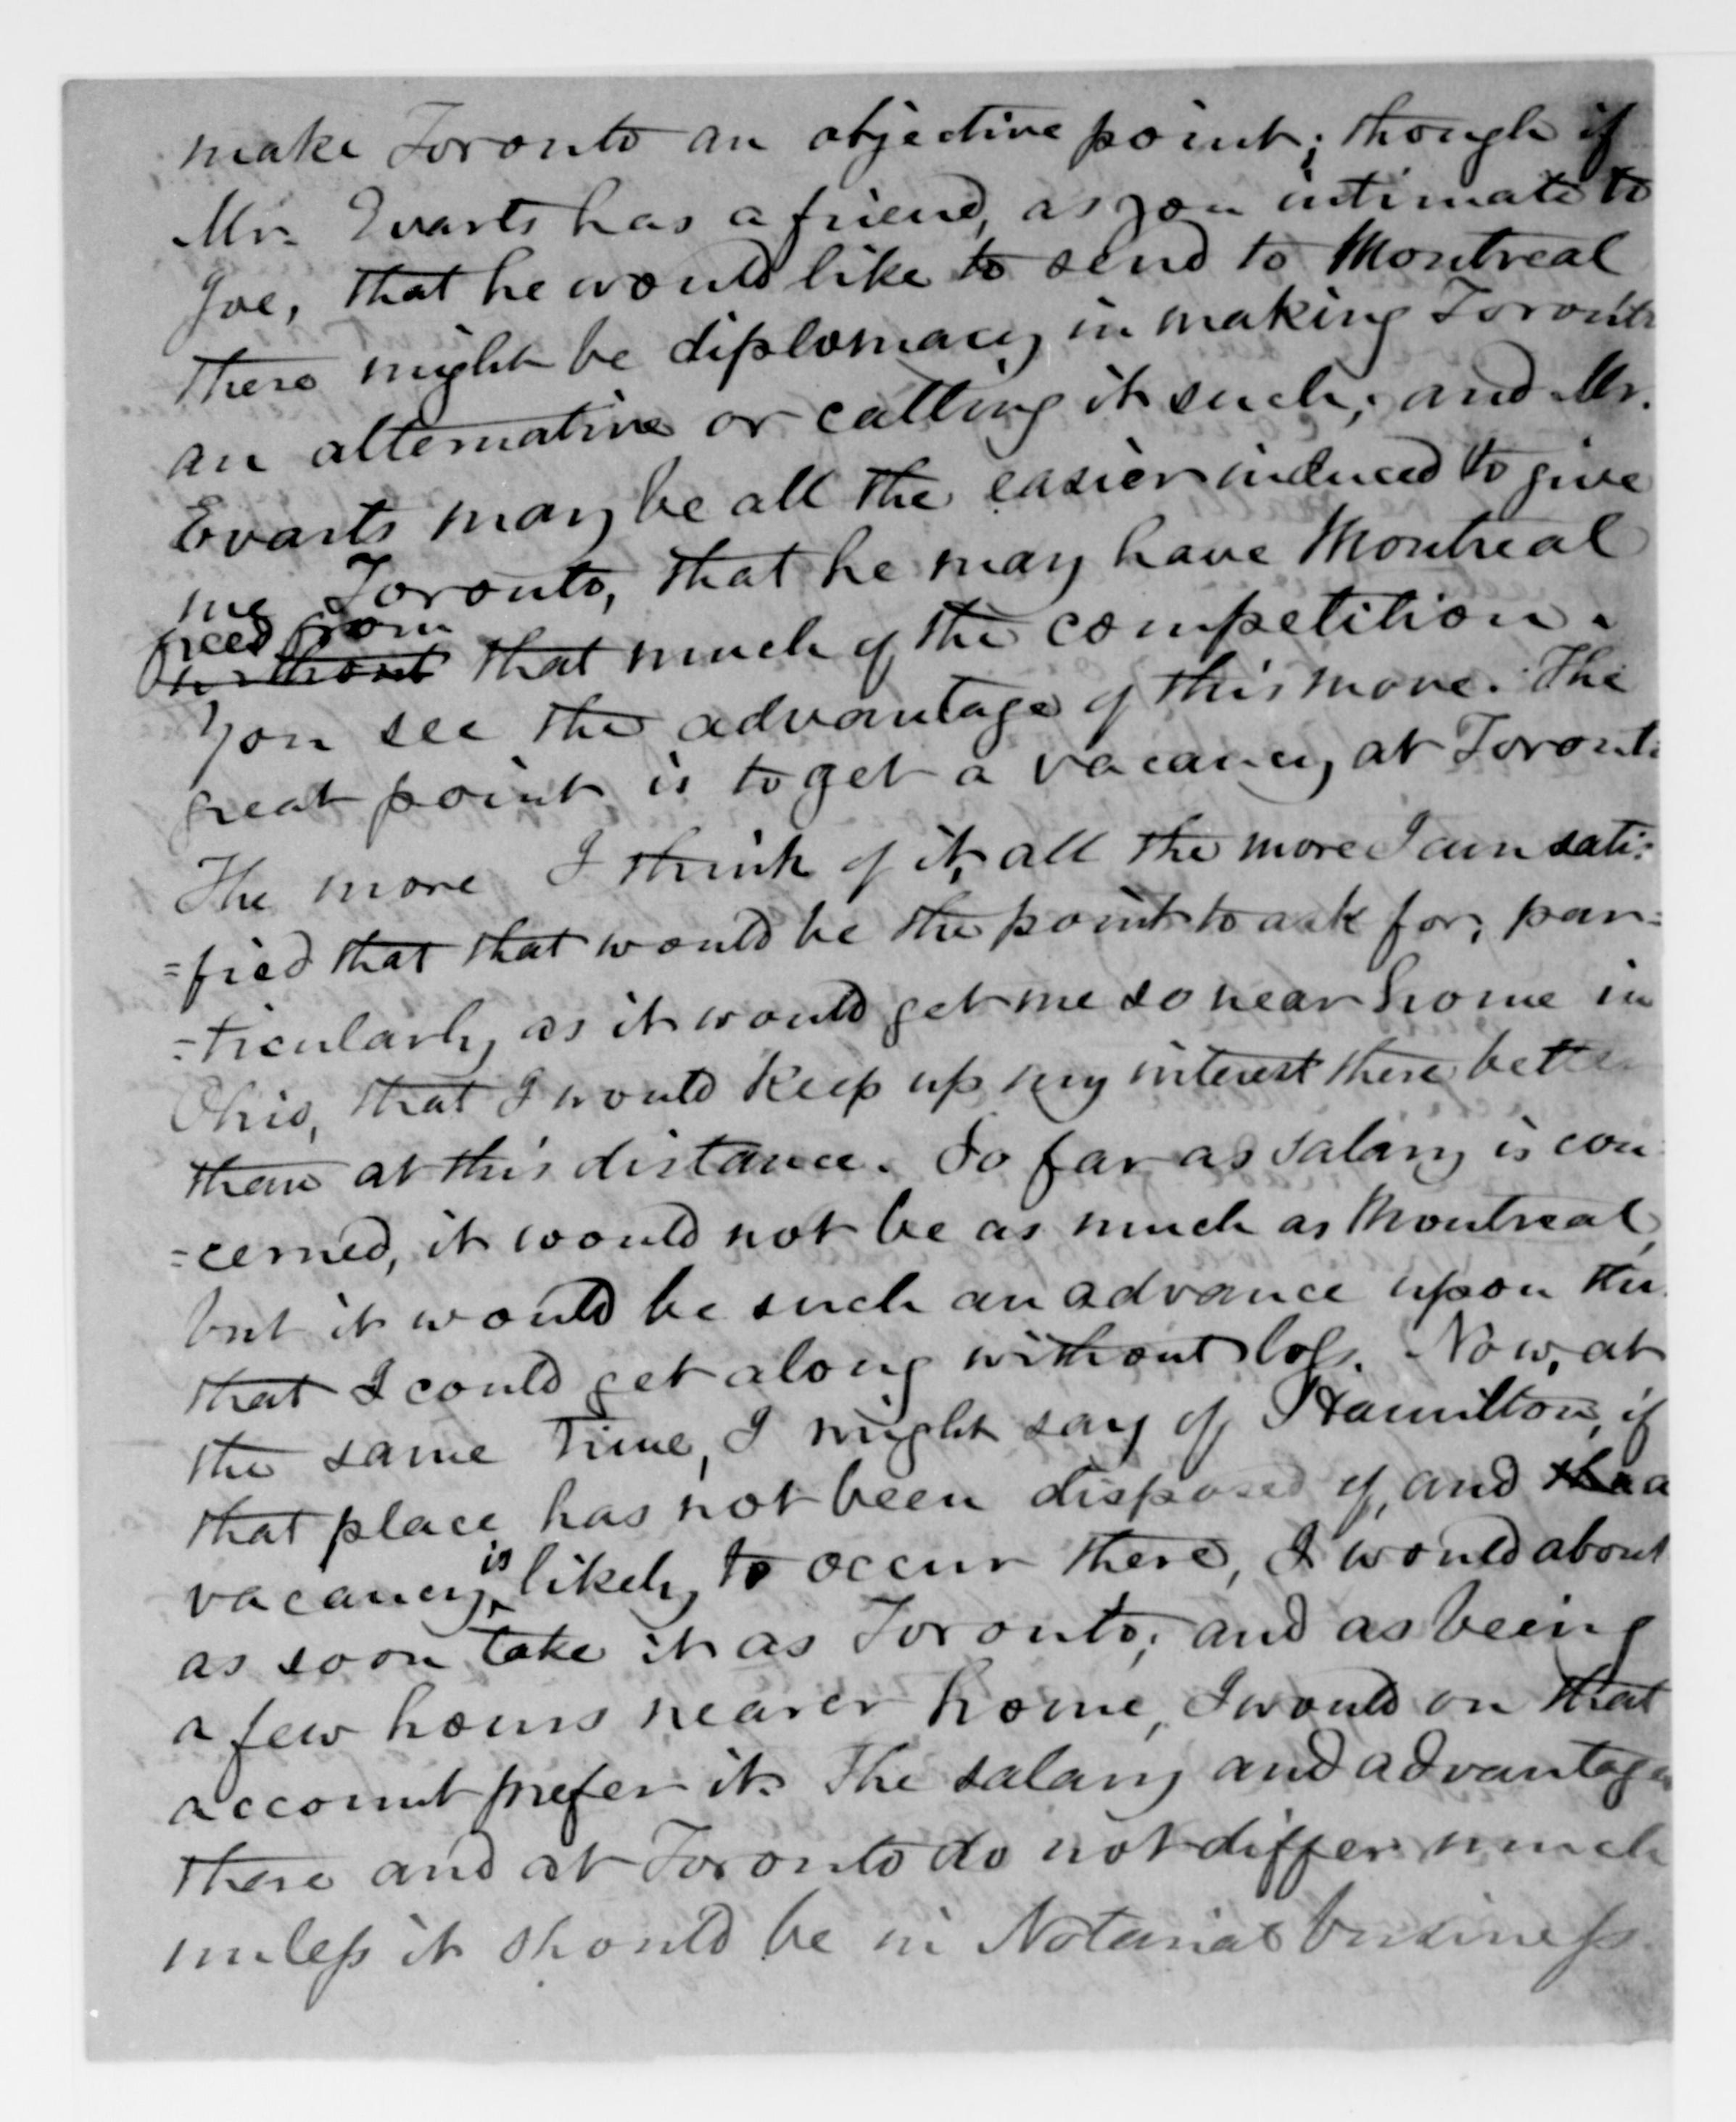 make Toronto an objective point; though if
Mr. Evarts has a friend, as you intimate to
Joe, that he would like to send to Montreal
there might be diplomacy in making Toronto
an alternative or calling it such; and Mr.
Evarts may be all the easier induced to give
me Toronto, that he may have Montreal
freed from
without that much of the competition.
You see the advantage of this move. The
great point is to get a vacancy at Toronto
The more I think of it, all the more I am satis=
=fied that that would be the point to ask for, par=
=ticularly as it would get me so near home in
Ohio, that I would keep up my interest there better
than at this distance. So far as salary is con
=cerned, it would not be as much as Montreal,
but it would be such an advance upon this
that I could get along without loss. Now, at
the same time, I might say of Hamilton, if
that place has not been disposed of, and a
is
vacancy likely to occur there, I would about
as soon take it as Toronto; and as being
a few hours nearer home, I would on that
account prefer it. The salary and advantages
there and at Toronto do not differ much
unless it should be in Notarial business.